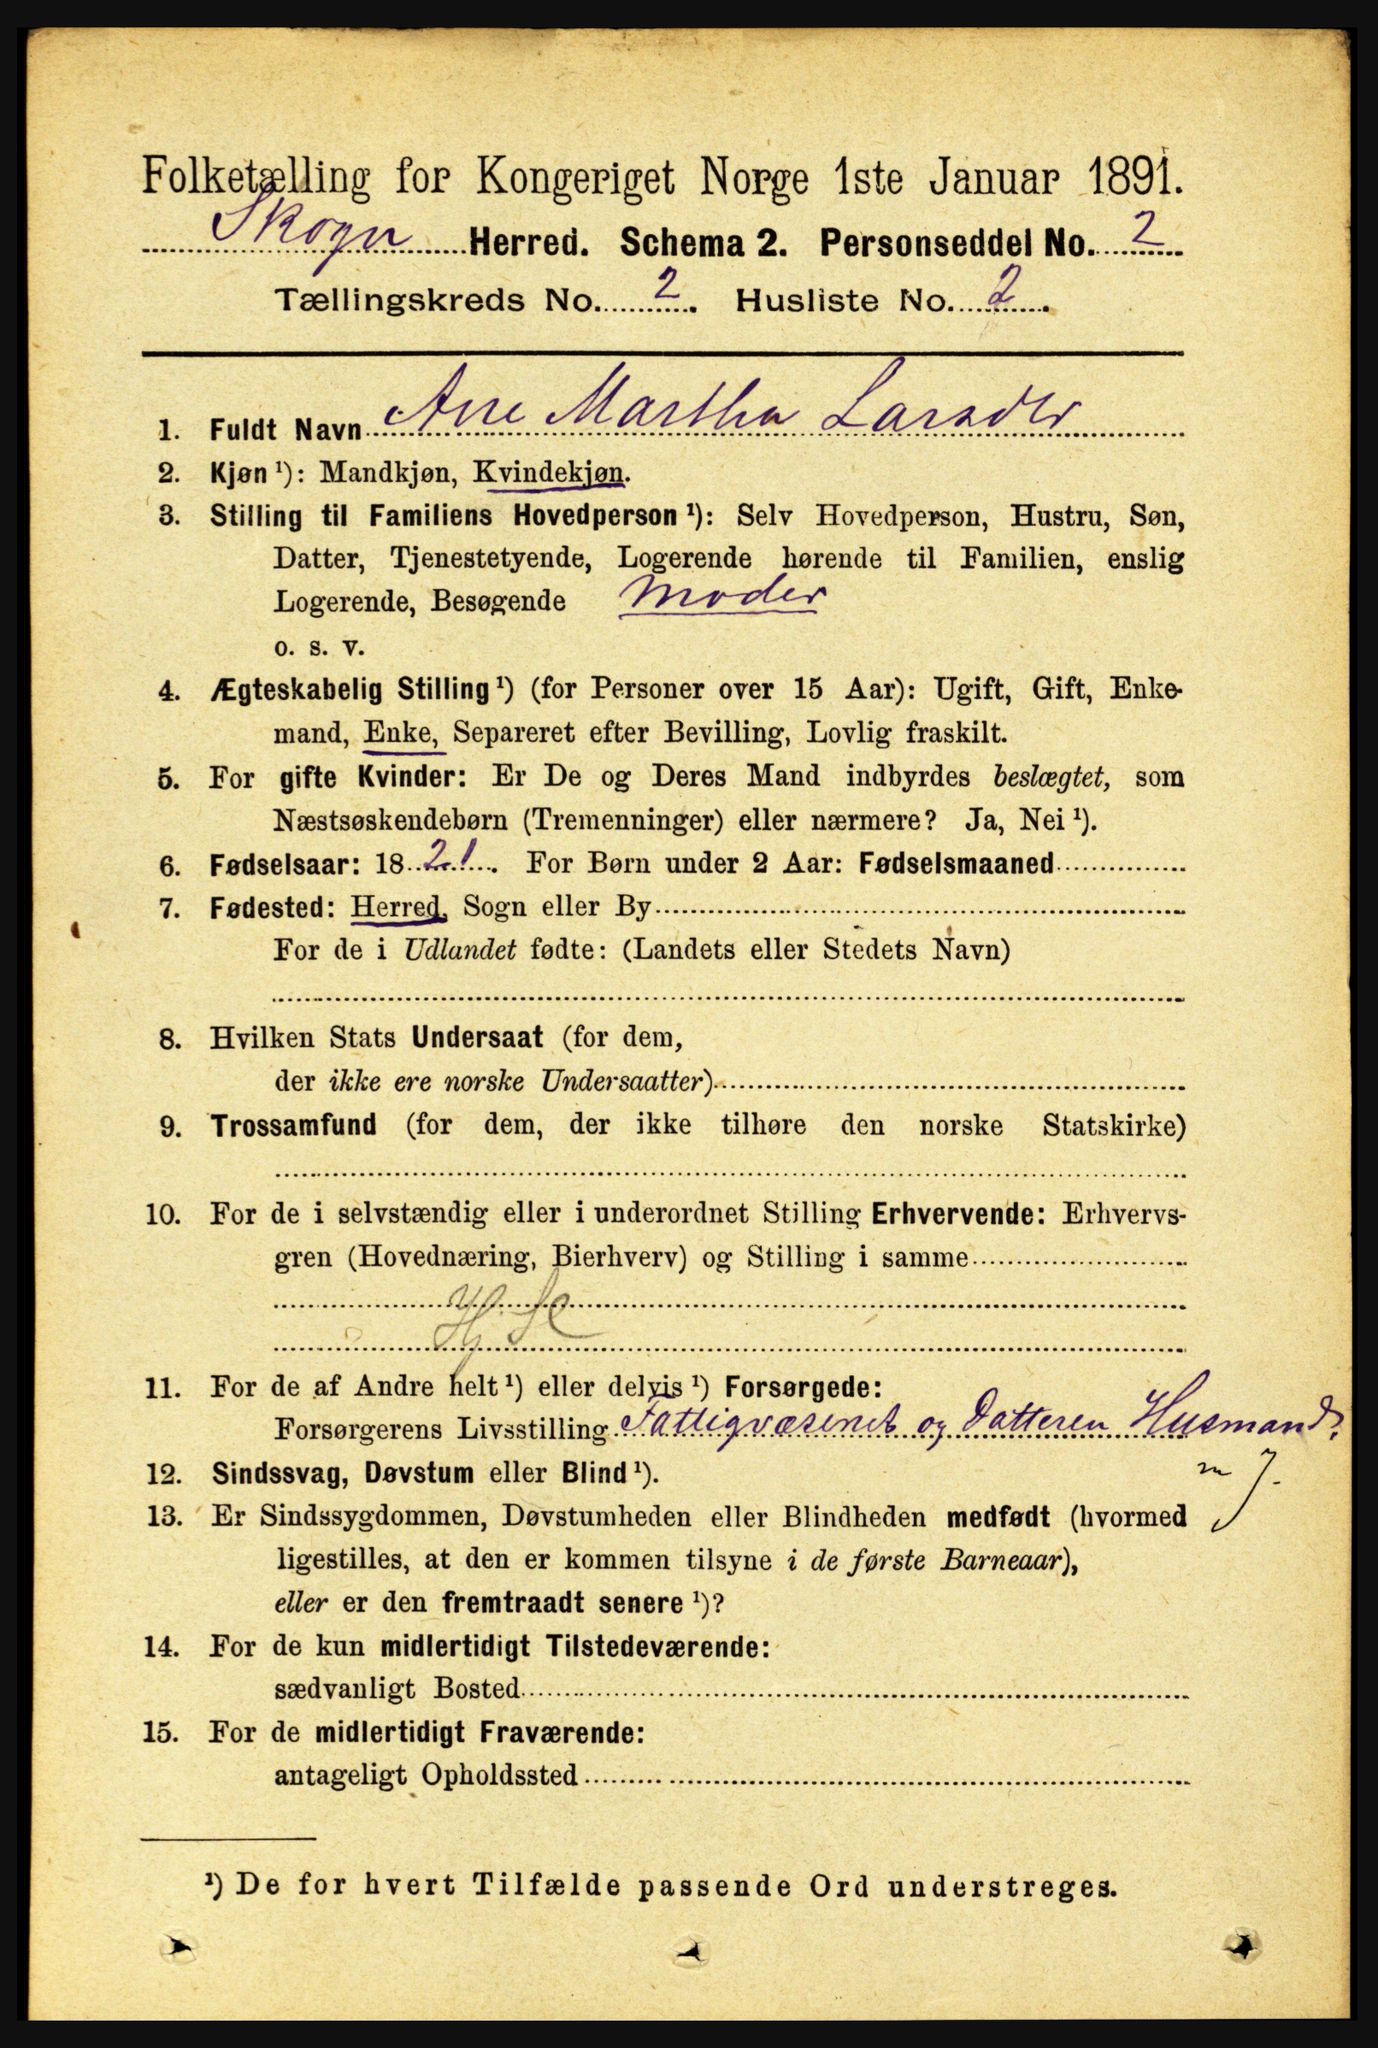 Folketælling for Kongeriget Norge 1ste Januar 1891.
Skogn Herred. Schema 2. Personseddel No. 2
Tællingskreds No. 2. Husliste No. 2.
1. Fuldt Navn Ane Martha Larsdtr
2. Kjøn ¹): Mandkjøn, Kvindekjøn.
3. Stilling til Familiens Hovedperson ¹): Selv Hovedperson, Hustru, Søn,
Datter, Tjenestetyende, Logerende hørende til Familien, enslig
Logerende, Besøgende Moder
o. s. v.
4. Ægteskabelig Stilling ¹) (for Personer over 15 Aar): Ugift, Gift, Enke-
mand, Enke, Separeret efter Bevilling, Lovlig fraskilt.
5. For gifte Kvinder: Er De og Deres Mand indbyrdes beslægtet, som
Næstsøskendebørn (Tremenninger) eller nærmere? Ja, Nei ¹).
6. Fødselsaar: 1821. For Børn under 2 Aar: Fødselsmaaned
7. Fødested: Herred, Sogn eller By
For de i Udlandet fødte: (Landets eller Stedets Navn)
8. Hvilken Stats Undersaat (for dem,
der ikke ere norske Undersaatter)
9. Trossamfund (for dem, der ikke tilhøre den norske Statskirke)
10. For de i selvstændig eller i underordnet Stilling Erhvervende: Erhvervs-
gren (Hovednæring, Bierhverv) og Stilling i samme
11. For de af Andre helt ¹) eller delvis ¹) Forsørgede:
Forsørgerens Livsstilling Fattigvæsenet og Datteren Husmand
m J.
12. Sindssvag, Døvstum eller Blind ¹).
13. Er Sindssygdommen, Døvstumheden eller Blindheden medfødt (hvormed
ligestilles, at den er kommen tilsyne i de første Barneaar),
eller er den fremtraadt senere ¹)?
14. For de kun midlertidigt Tilstedeværende:
sædvanligt Bosted
15. For de midlertidigt Fraværende:
antageligt Opholdssted
¹) De for hvert Tilfælde passende Ord understreges.